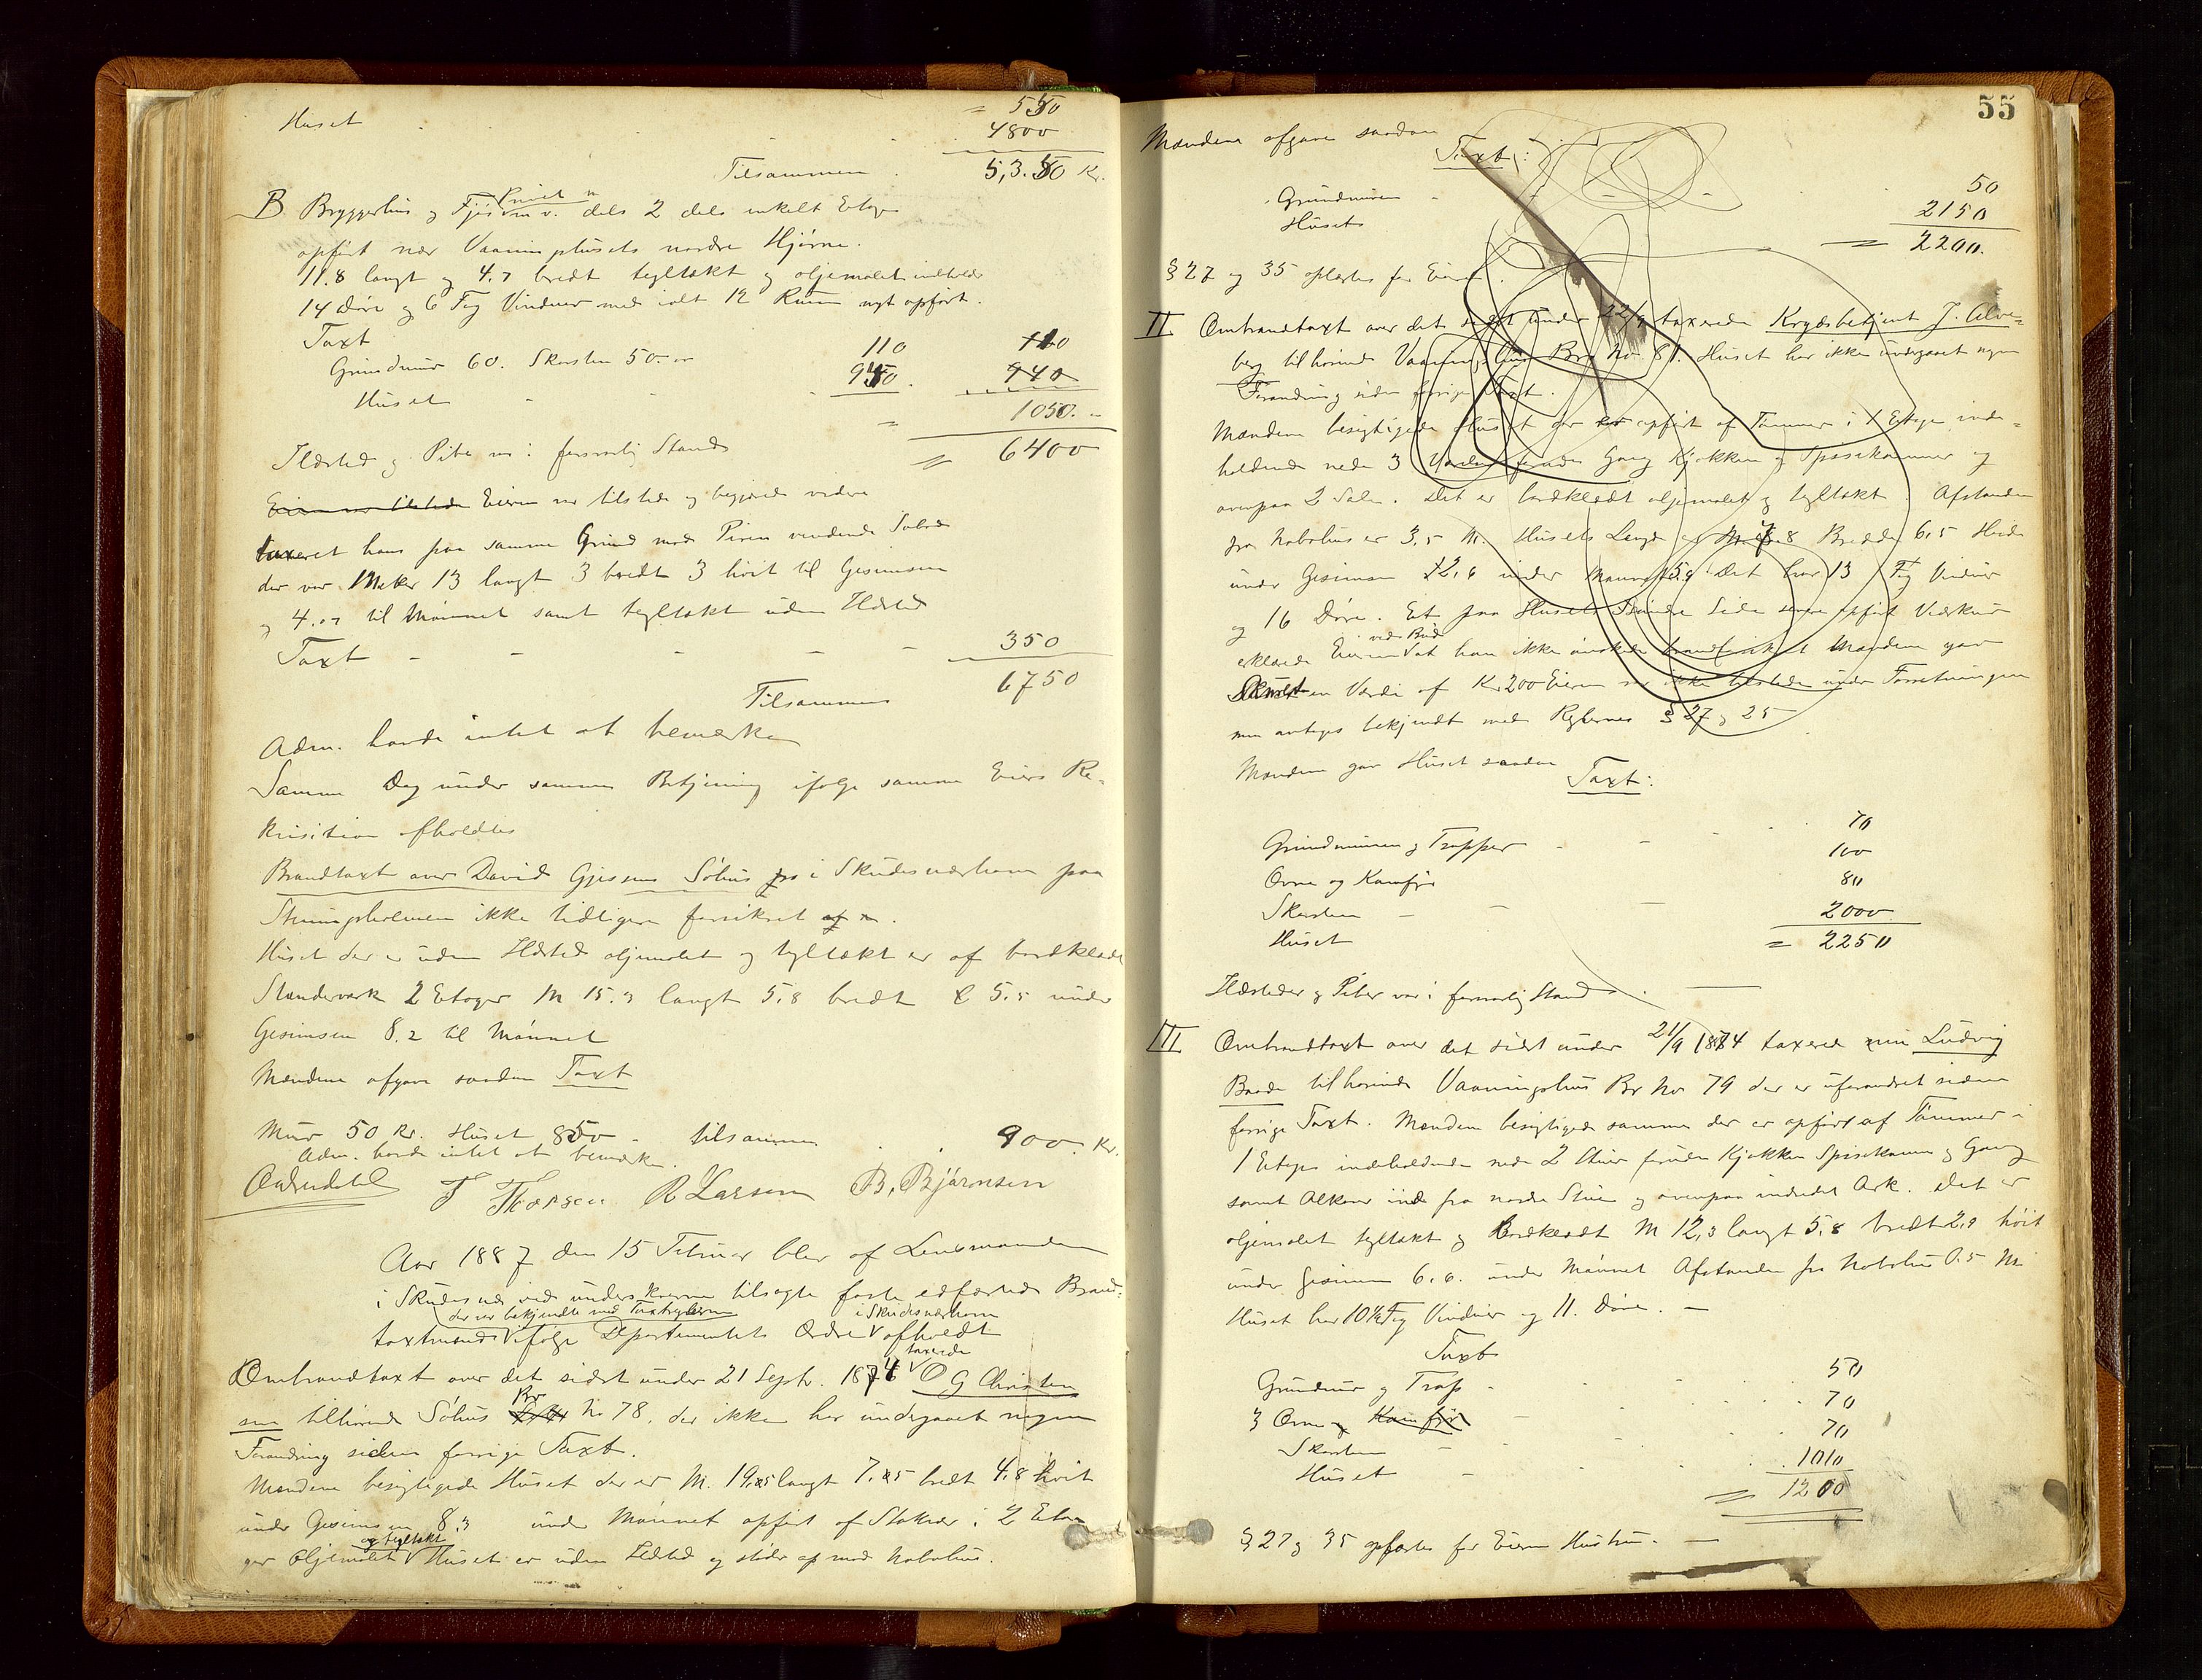 Huset = 550
4800
Tilsammen 5,350 Kr.
B. Bryggerhus og Fjøs m. v. dels 2 dels enkelt Etage
opført nær Vaaningshusets nordre Hjørne.
11.8 langt og 4.7 bredt tegltækt og oljemalet indeholder
14 Døre og 6 Fag Vinduer med ialt 12 Rum nyt opført.
Taxt
Grundmur 60. Skorsten 50. 110 110
Huset 940 940
= 1050.
Ildsted og Pibe var i forsvarlig Stand = 6400
Eieren var tilstede Eieren var tilstede og begjærede videre
taxeret hans paa samme Grund mod Piren vendende Sobod
der var Meter 13 langt 3 bredt 3 høit til Gesimsen
og 4.07 til Mønnet samt tegltækt uden Ildsted
Taxt 350
Tilsammen 6750
Adm. havde intet at bemærke
Samme Dag under samme Betjening ifølge samme Eiers Re-
kvisition afholdtes
Brandtaxt over David Gjesens Søhus i Skudesneshavn paa
Steiningsholmen ikke tidligere forsikret
Huset der er uden Ildsted oljemalet og tegltækt er af bordklædt
Standerværk 2 Etager M 15.3 langt 5.8 bredt 5.5 under
Gesimsen 8.2 til Mønnet
Mændene afgave saadan Taxt
Mur 50 Kr. Huset 850 - tilsammen 900 Kr.
Adm. havde intet at bemærke.
T Thorsen R Larsen B. Bjørnsen
Aar 1887 den 15 Februar blev af Lensmanden
i Skudesnes ved underskrevne tilsagte faste edfæstede Brand-
der var bekjendte med Taxtreglerne i Skudesneshavn
taxtmænd ifølge Departementets Ordre afholdt
taxerede
Ombrandtaxt over det sidst under 21 Septr. 1874 O G Christen
sen tilhørende Søhus Br No 78, der ikke har undergaaet nogen
Forandring siden forrige Taxt.
Mændene besigtigede Huset der er M. 19.25 langt 7.25 bredt 4.8 høit
under Gesimsen 8.3 under Mønnet opført af Stokver i 2 Eta-
og tegltækt
ger Oljemalet Huset er uden Ildsted og støder op mod Nabohus.
55
Mændene afgave saadan
Taxt:
Grundmuren 50
Huset 2150
= 2200.
§ 27 og 35 oplæstes for Eieren.
II Ombrandtaxt over det sidst under 22/9 taxerede Krydsbetjent J. Alve-
berg tilhørende Vaaningshus Br No 81. Huset har ikke undergaaet nogen
Forandring siden forrige Taxt.
Mændene besigtigede Huset der er opført af Tømmer i 1 Etage inde-
holdende nede 3 Værelser foruden Gang Kjøkken og Spisekammer og
ovenpaa 2 Sale. Det er bordklædt oljemalet og tegltækt. Afstanden
fra Nabohus er 3,5 M. Husets Længde er M. 8 Bredde 6,5 Høide
under Gesimsen 2,6 under Mønnet 5,9 Det har 13 Fag Vinduer
og 16 Døre. Et paa Husets Søndre Side senere opført Vedskur
ved Bud
erklærede Eieren at han ikke ønskede brandforsikret Mændene gav
Skuret en Værdi af Kr 200 Eieren var ikke tilstede under Forretningen
men antages bekjendt med Reglernes § 27 og 25
Mændene gav Huset saadan Taxt:
Grundmuren og Trapper 70
Ovne og Komfyr 100
Skorsten 80
Huset 2000
= 2250
Ildsteder og Piber var i forsvarlig Stand.
III Ombrandtaxt over det sidst under 21/9 1874 taxerede Ludvig
Baade tilhørende Vaaningshus Br No 79 der er uforandret siden
forrige Taxt. Mændene besigtigede samme der er opført af Tømmer i
1 Etages indeholdende nede 2 Stuer foruden Kjøkken Spisekammer og Gang
samt Alkove inde fra nordre Stue og ovenpaa indredet Ark. Det er
oljemalet tegltækt og bordklædt M 12,3 langt 5,8 bredt 2,9 høit
under Gesimsen 6.6. under Mønnet Afstanden fra Nabohus 0.5 M.
Huset har 10½ Fag Vinduer og 11. Døre. —
Taxt
Grundmur og Trap 50
3 Ovne og Komfyr 70
Skorsten 70
Huset 1010
= 1200
§ 27 og 35 oplæstes for Eieren Hustru. —